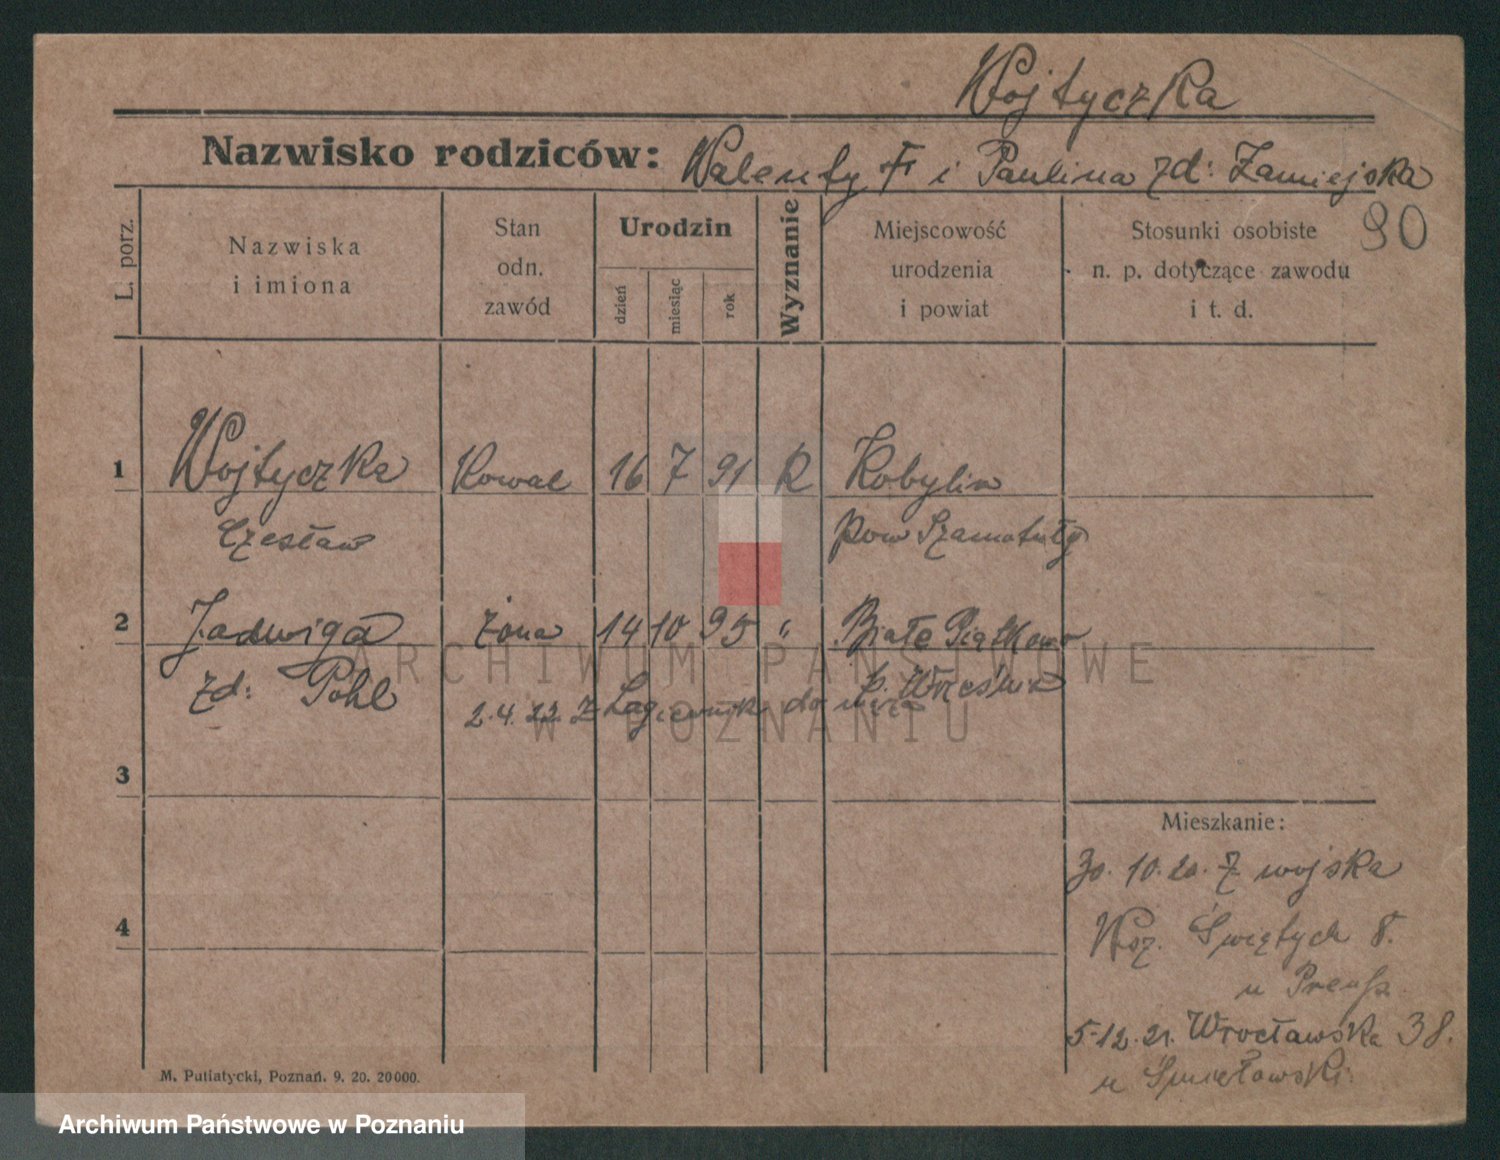 Wojtyczka
Nazwisko rodziców: Walenty † i Paulina zd: Zamiejska
90
L. porz.
Nazwiska
i imiona
Stan
odn.
zawód
Urodzin
dzień
miesiąc
rok
Wyznanie
Miejscowość
urodzenia
i powiat
Stosunki osobiste
n. p. dotyczące zawodu
i t. d.
1 Wojtyczka Kowal 16 7 91 R Kobylin
Czesław pow Szamotuły
2 Jadwiga żona 14 10 95 " Białe Piątkowo
zd: Pohl p. Września
2.4.22. Z Łagiewnik do męża
3
4
Mieszkanie:
30. 10. 20. Z wojska
Wsz. Świętych 8.
u Preuß
5.12.21. Wrocławska 38.
u Śmiełowski.
M. Putiatycki, Poznań. 9. 20. 20000.
ARCHIWUM PAŃSTWOWE
W POZNANIU
Archiwum Państwowe w Poznaniu